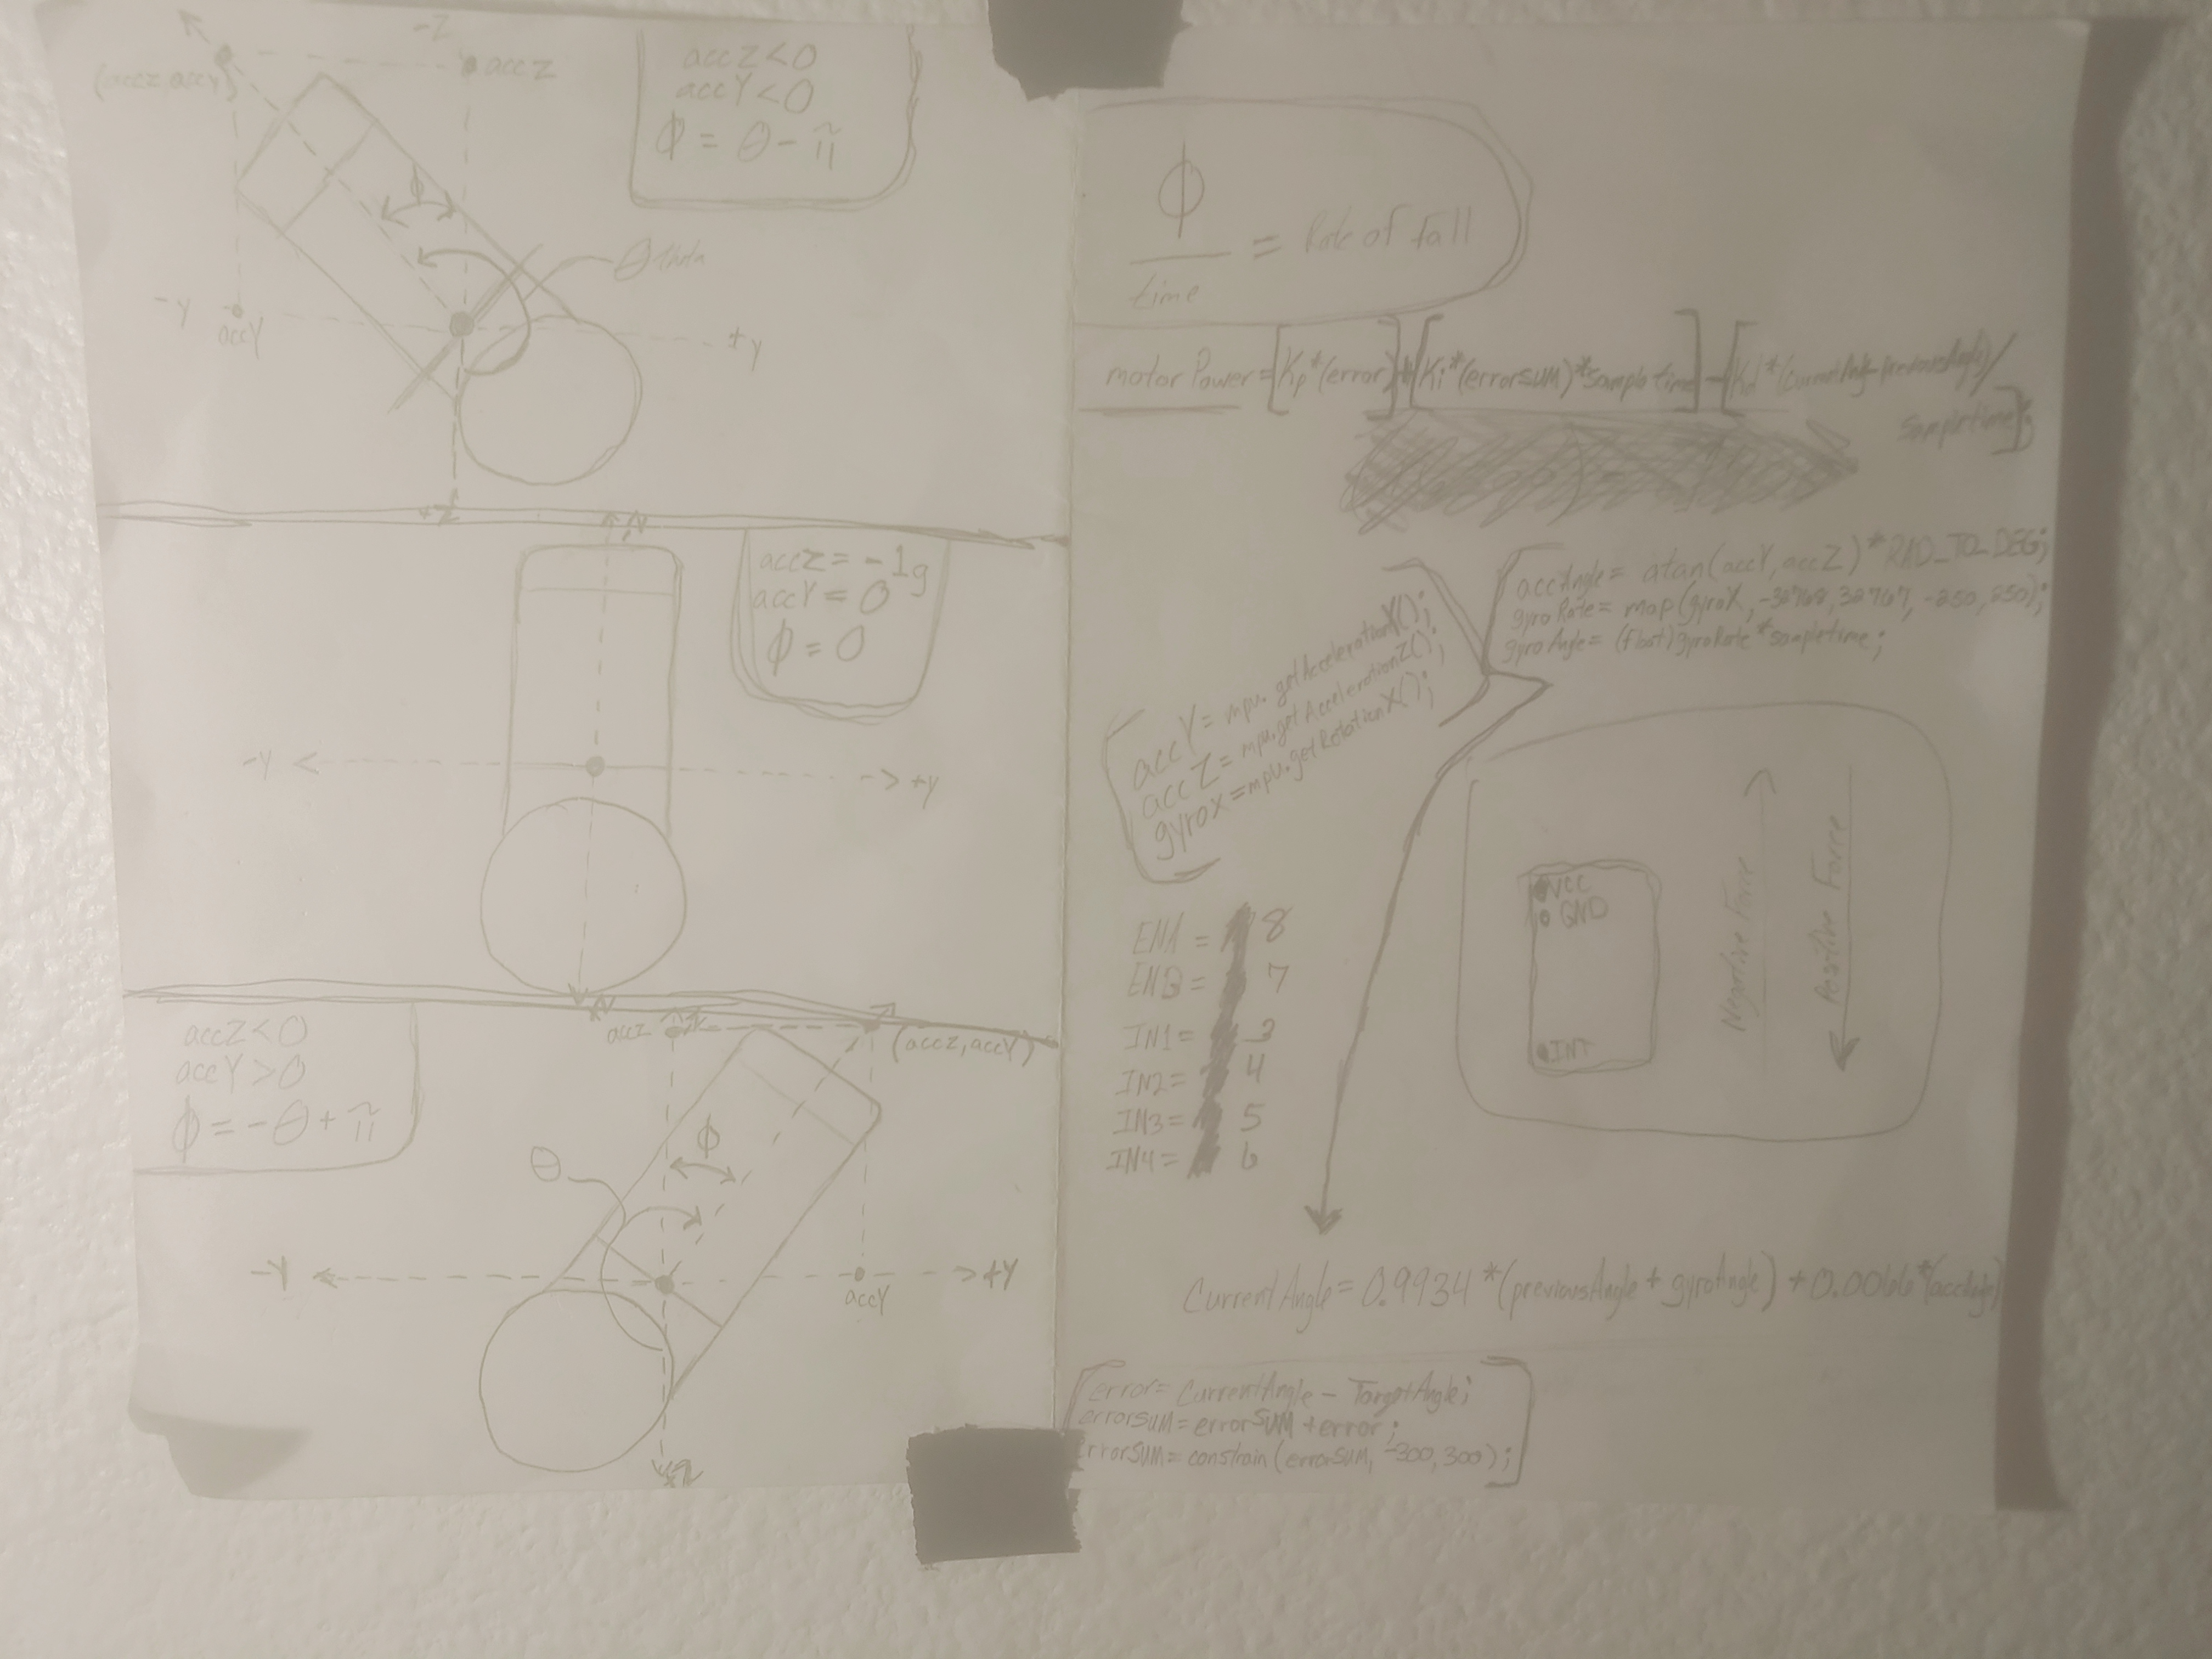 -Z
(accz accY)
accZ
accZ<0
accY<0
ϕ = θ - π
ϕ
θ theta
-y
accY
+y
+Z
accZ = -1g
accY = 0
ϕ = 0
-Y
+y
accZ<0
accY>0
ϕ = -θ + π
accZ
(accZ, accY)
ϕ
θ
-Y
+Y
accY
ϕ
time
= Rate of fall
motor Power = [Kp*(error)] + [Ki*(errorSUM)*sampletime] - [Kd*(currentAngle-previousAngle)/
sampletime];
accAngle = atan(accY,accZ)*RAD_TO_DEG;
gyroRate = map(gyroX, -32768, 32767, -250, 250);
gyroAngle = (float)gyroRate*sampletime;
accY = mpu.getAccelerationY();
accZ = mpu.getAccelerationZ();
gyroX = mpu.getRotationX();
VCC
GND
INT
Negative Force
Positive Force
ENA = 8
ENB = 7
IN1 = 3
IN2 = 4
IN3 = 5
IN4 = 6
CurrentAngle = 0.9934*(previousAngle + gyroAngle) + 0.0066*(accAngle)
error = CurrentAngle - TargetAngle;
errorSUM = errorSUM + error;
errorSUM = constrain(errorSUM, -300, 300);